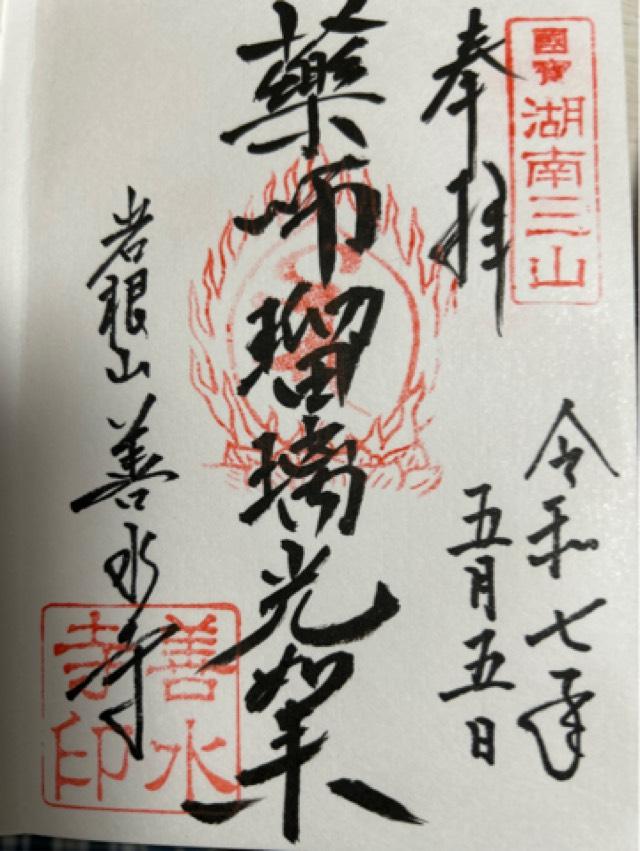 國寶
湖南三山
奉拝
令和七年
五月五日
藥師瑠璃光如来
岩根山善水寺
善水
寺印